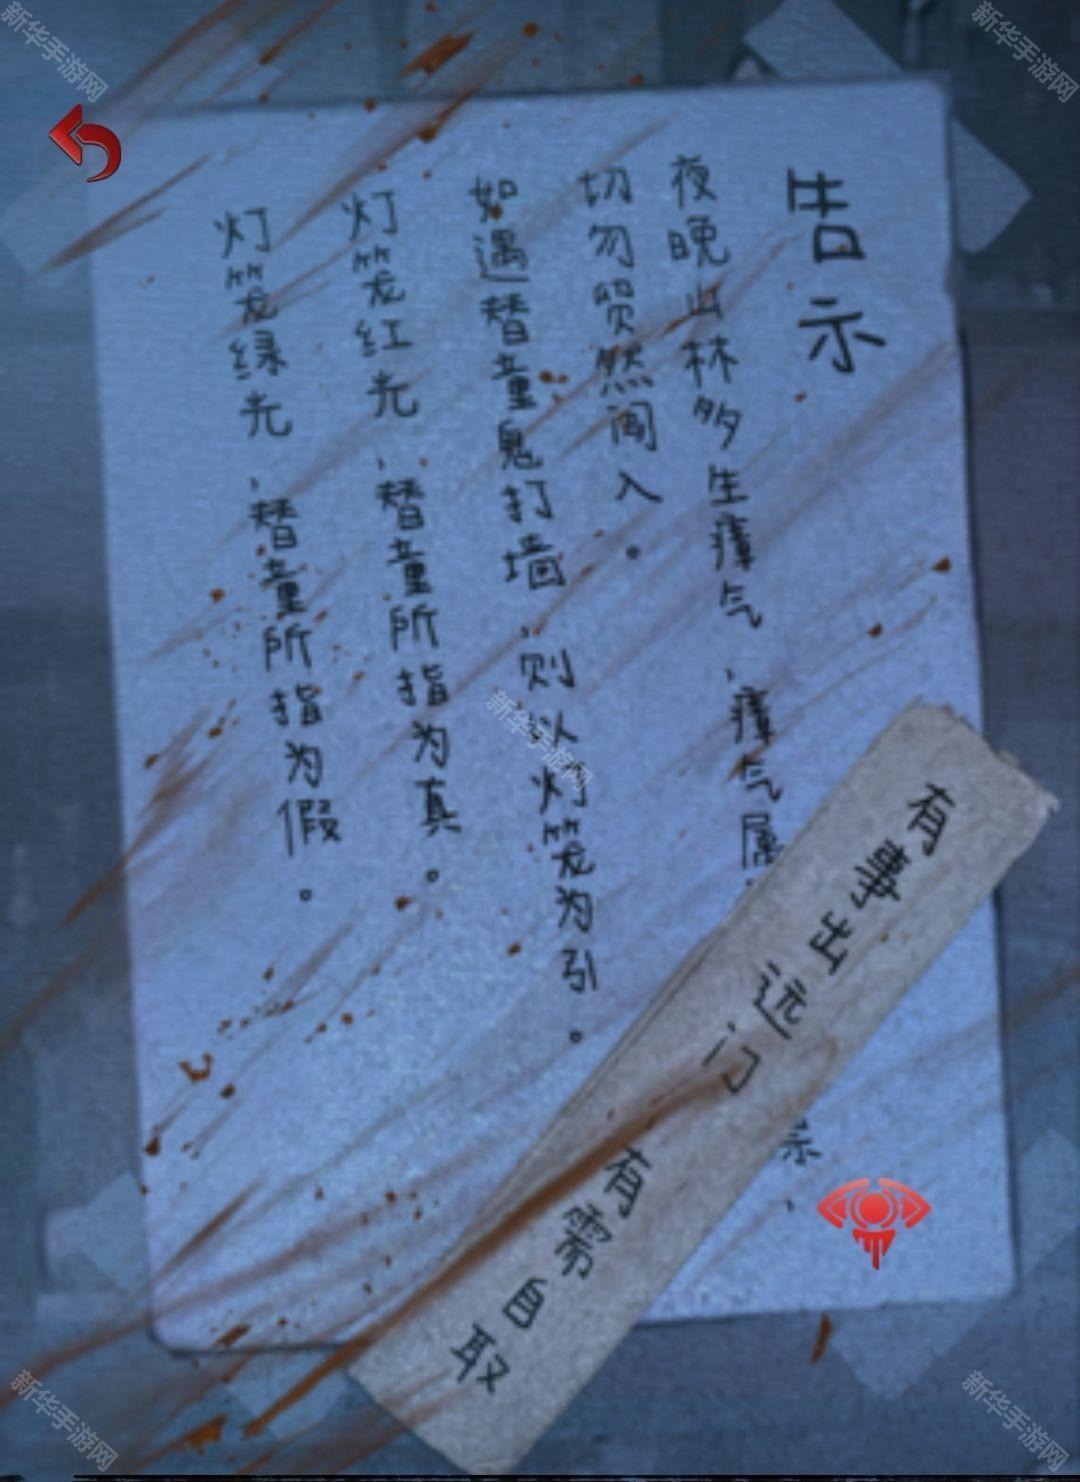 告示
夜晚山林多生瘴气,瘴气属
切勿贸然闯入。
如遇替童鬼打墙,则以灯笼为引。
灯笼红光,替童所指为真。
灯笼绿光,替童所指为假。
有事出远门
有需自取
新华手游网
新华手游网
新华手游网
新华手游网
新华手游网